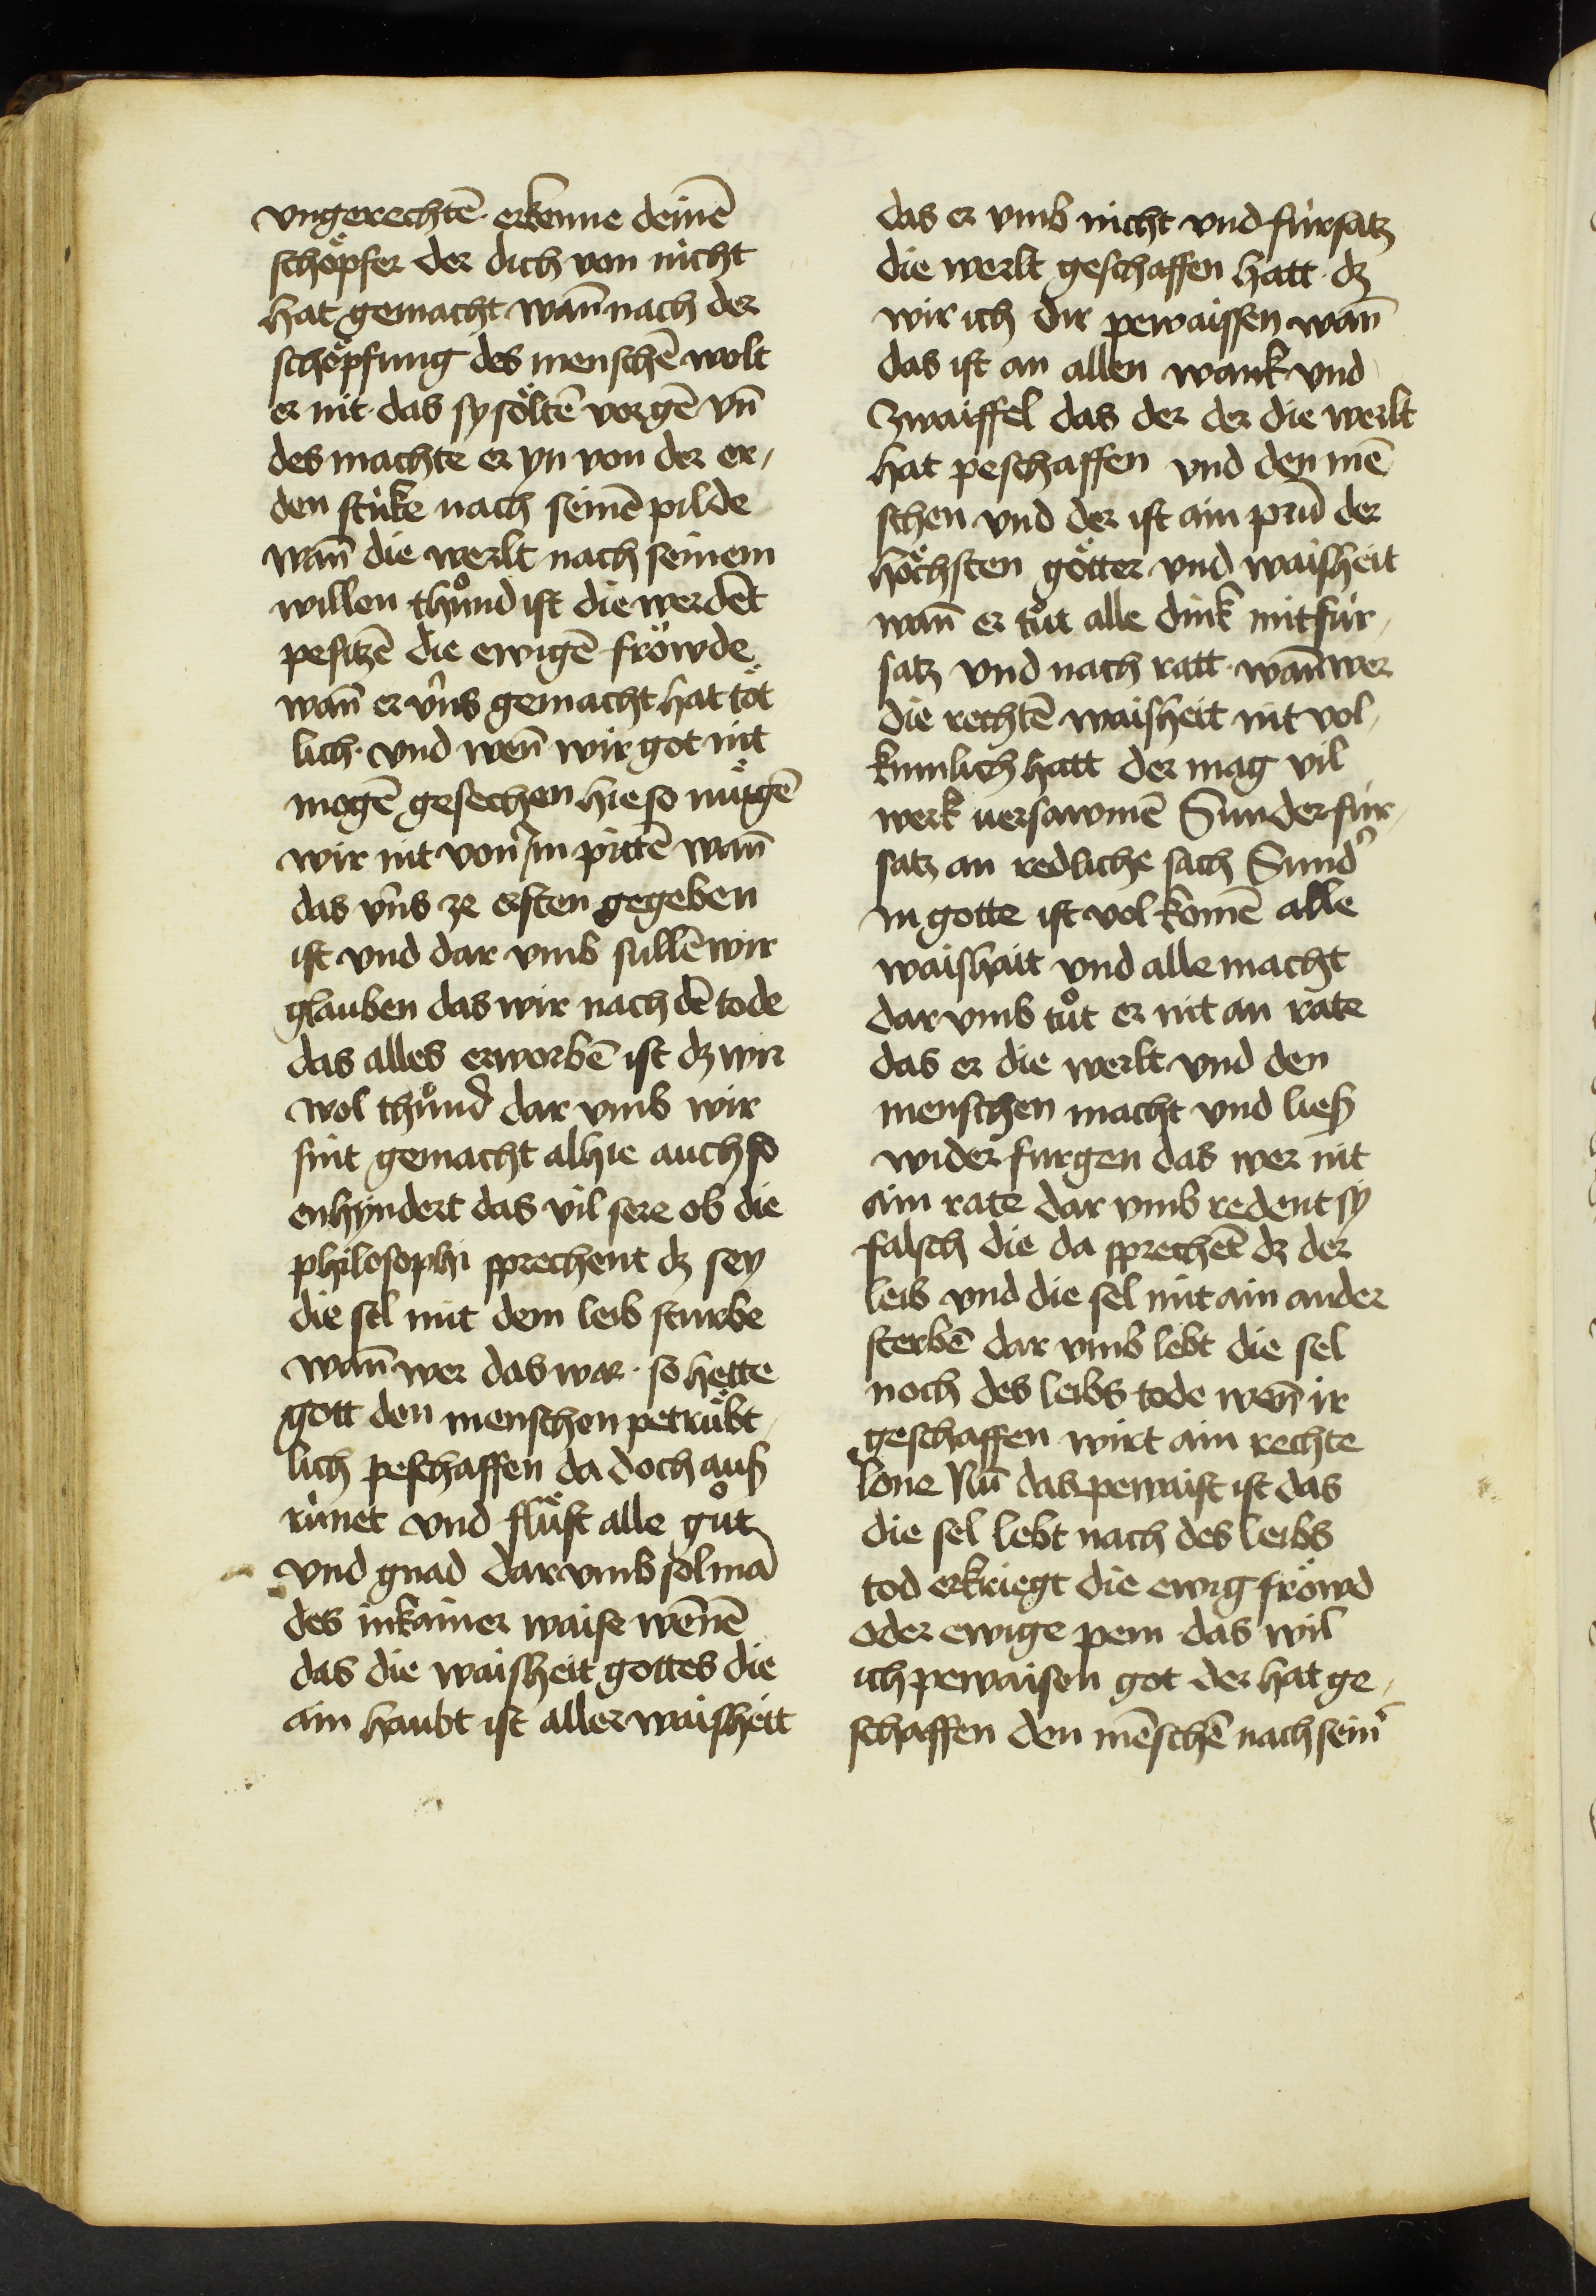 vngerechtē · erkenne deinē
schöpfer der dich von nicht
hat gemacht wann̄ nach der
schöpfung des menschē wolt
er nit · das sy söltē vergē vn̄
des machte er yn von der er⸗
den stuke nach seinē pilde
wann̄ die werlt nach seinem
willen thůnd ist die werdēt
pesitzē die ewigē fröwde
wann̄ er vns gemacht hat töt
lich · vnd wenn̄ wir got nit
mogē gesechen hie so mügē
wir nit von im pittē wann̄
das vns ze ersten gegeben
ist vnd dar vmb sullē wir
glauben das wir nach dē tode
das alles erworbē ist dz wir
wol thůnd dar vmb wir
sint gemacht alhie auch so
enhyndert das vil sere ob die
philosophi sprechent dz sey
die sel mit dem leib sturbe
wann̄ wer das war · so hette
gott den menschen petrübt
lich peschaffen da doch auß
rinnet vnd flüst alle gůt
vnd gnad dar vmb sol mā
des in kainer waise wēnē
das die waisheit gottes die
ain haubt ist aller waisheitt
das er vmb nicht vnd fürsatz
die werlt geschaffen hatt · dz
wir ich dir pewaissen wann̄
das ist an allen wank vnd
zwaiffel das der der die werlt
hat peschaffen vnd den mē
schen vnd der ist ain prun̄ der
höchsten götter vnd waisheit
wann̄ er tůt alle dink mit für⸗
satz vnd nach ratt · wann̄ wer
die rechtē waisheit nit vol⸗
kumlich hatt der mag vil
werk versawmē Sunder für⸗
satz an redliche sach Sund'
in gotte ist volkomē alle
waishait vnd alle macht
dar vmb tůt er nit an rate
das er die werlt vnd den
menschen macht vnd ließ
wider furgen das wer nit
ain rate dar vmb redent sy
falsch die da sprechēt dz der
leib vnd die sel mit ain ander
sterbē dar vmb lebt die sel
noch des leibs tode wenn̄ ir
geschaffen wirt ain rechte
lone Nū das pewaist ist das
die sel lebt nach des leibs
tod erkriegt die ewig fröwd
oder ewige pein das wil
ich pewaisen got der hat ge⸗
schaffen den mēschē nach sein'